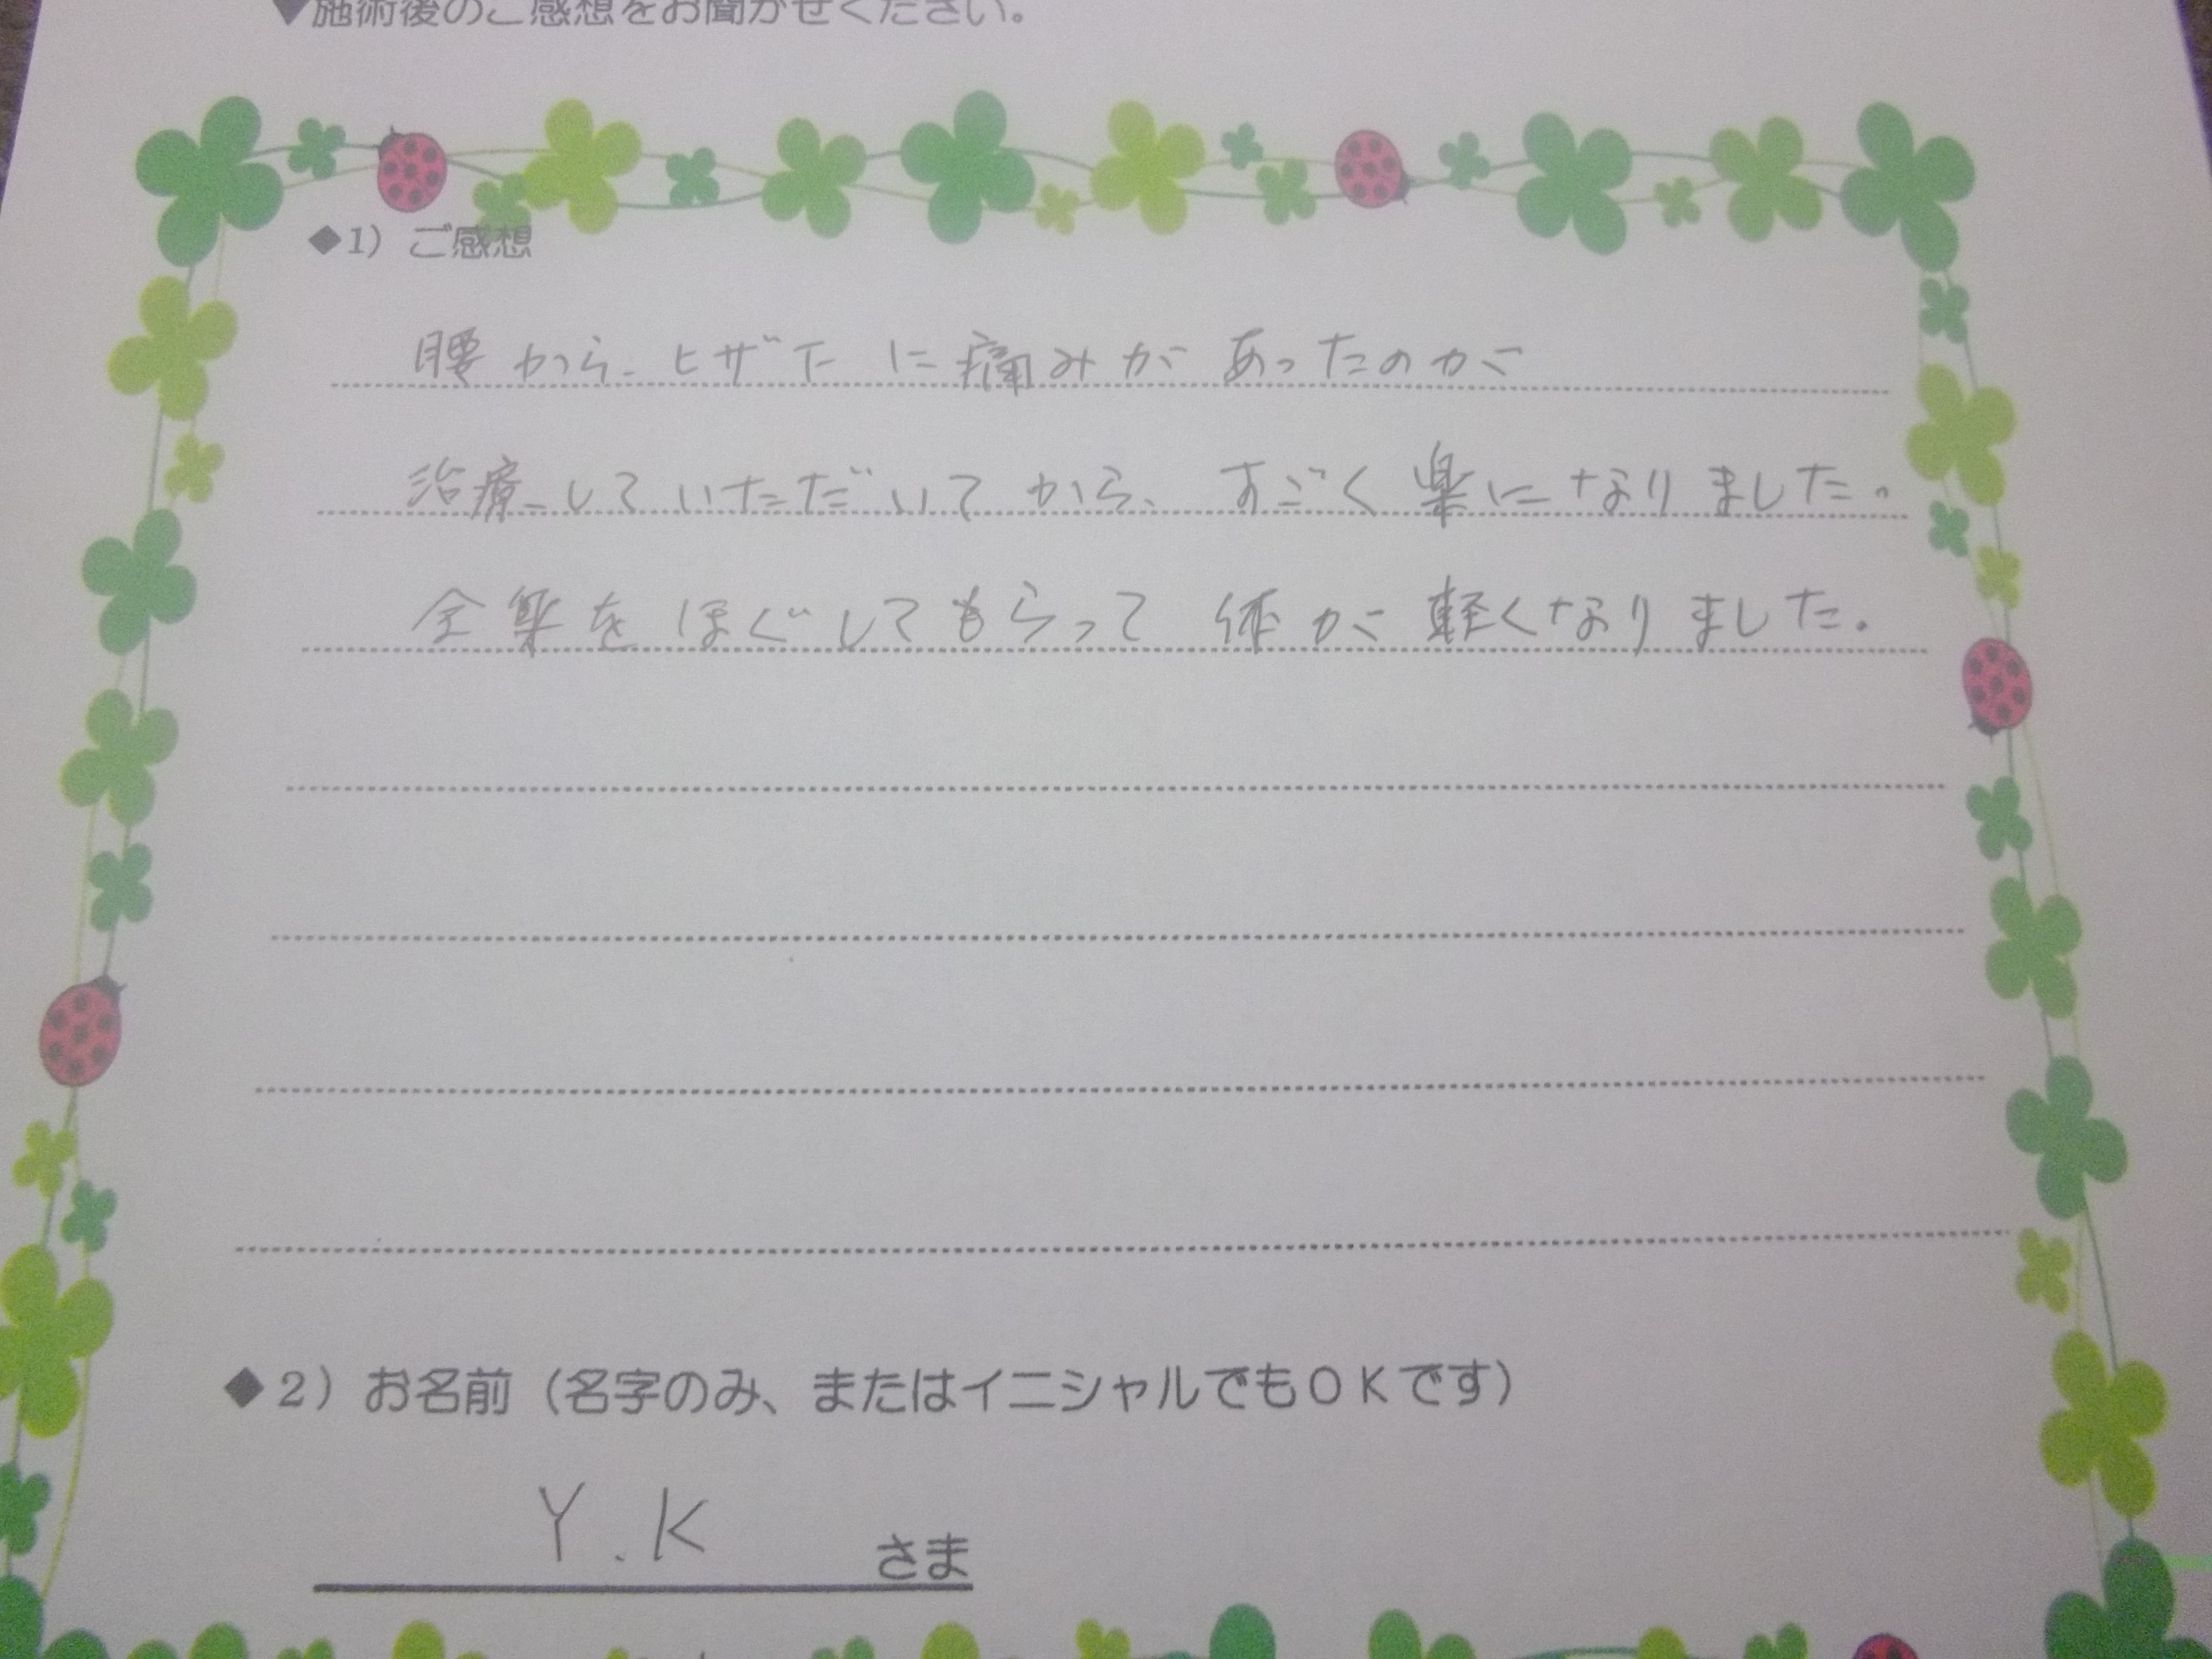 ▼施術後のご感想をお聞かせください。
◆1）ご感想
腰から、ヒザ下に痛みがあったのが
治療していただいてから、すごく楽になりました。
全 をほぐしてもらって 体が軽くなりました。
◆2）お名前（名字のみ、またはイニシャルでもOKです）
Y.K さま